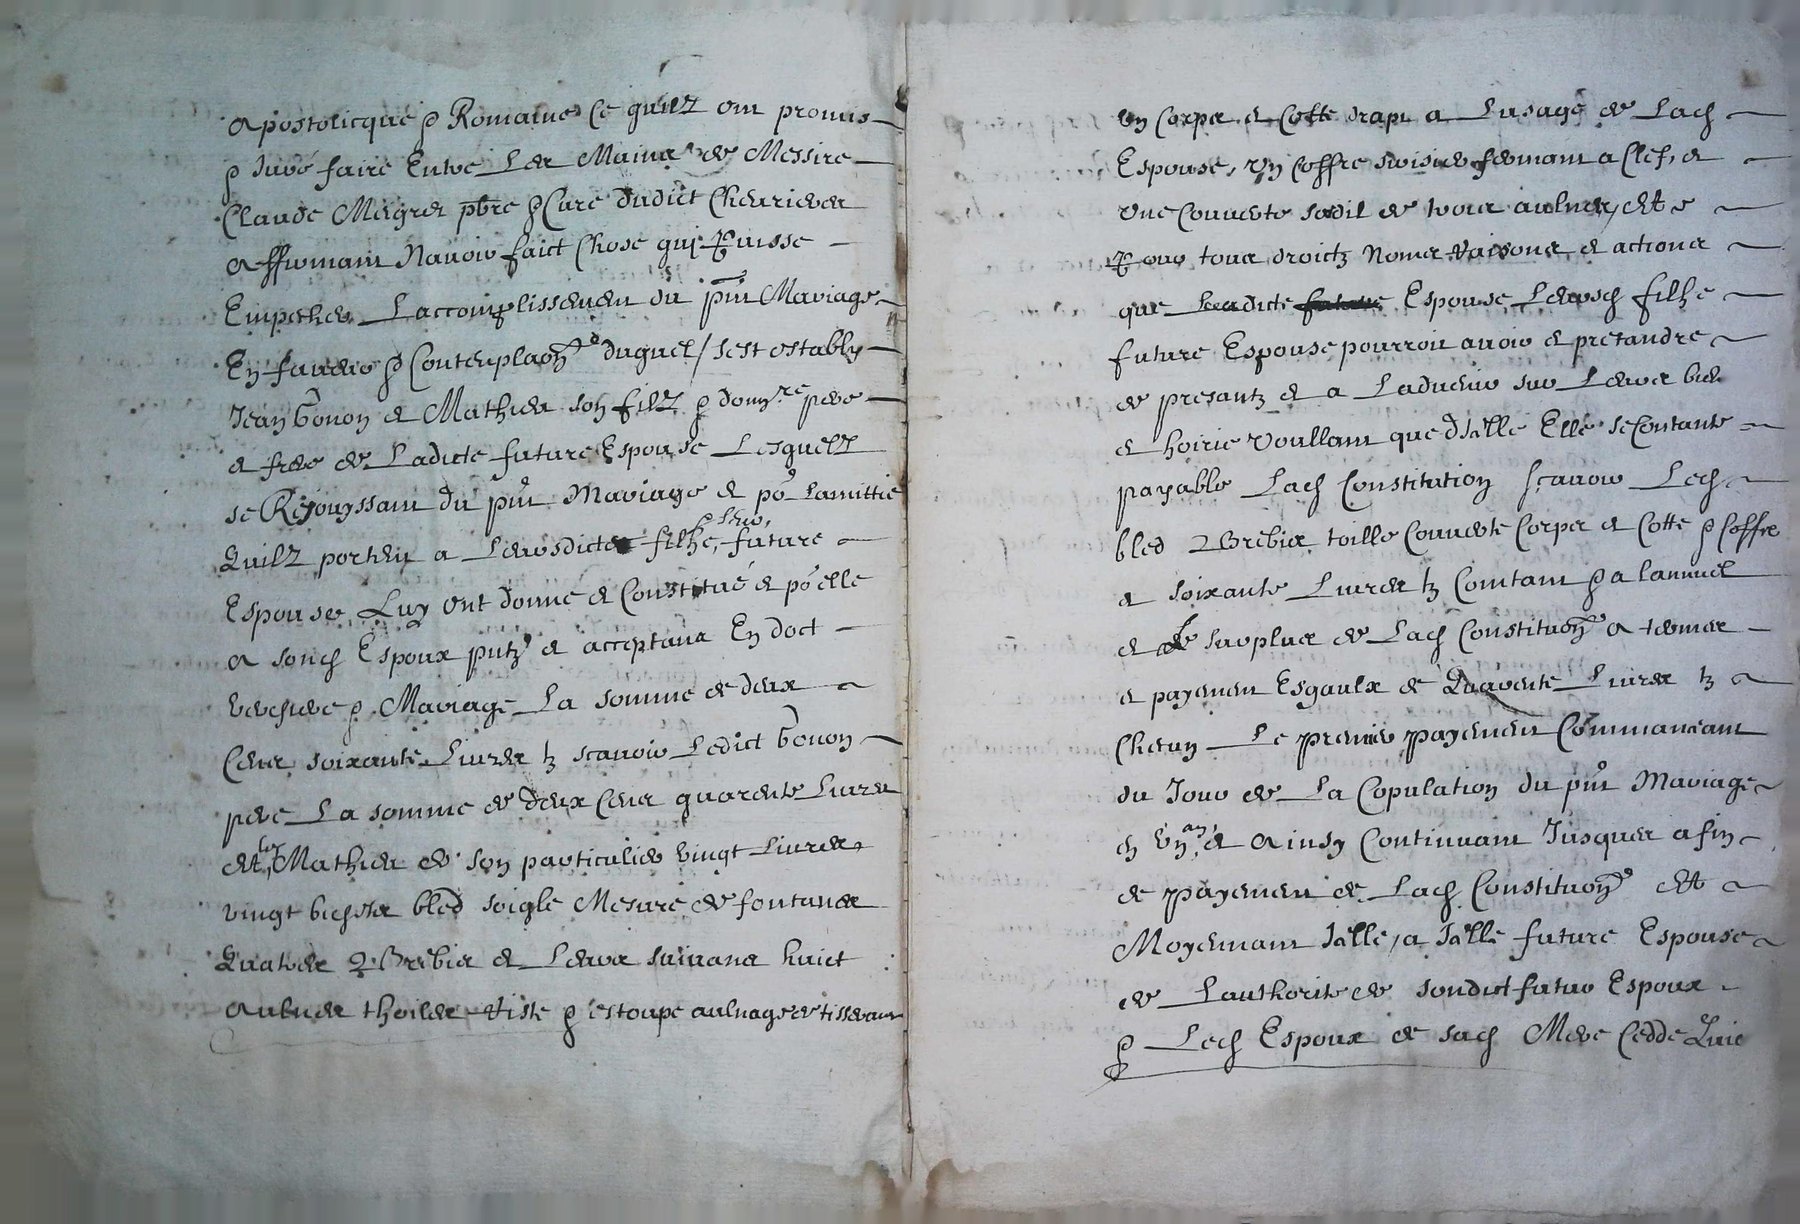 apostolicque & Romaine Ce quilz ont promis
& Juré faire Entre Les Mains de Messire
Claude Megret pbre & Curé dudict Chevrieres
affirmant Navoir faict Chose qui puisse
Empecher Laccomplissement du pnt Mariage
En faveur & Contemplaon duquel / sest establys
Jean bonon et Mathieu son filz & donnre pere
et frere de Ladicte future Espouse Lesquelz
se Rejouyssant du pnt Mariage et por Lamittie
Quilz portent a Leursdictes filhe, & seur, future
Espouse Luy ont donné et Constitué et por elle
a sond Espoux pntz et acceptans En doct
verchere & Mariage La somme de deux
Cens soixante Livres tz scavoir Ledict bonon
pere La somme de deux Cens quarente Livres
et led Mathieu de son particulier vingt Livres
vingt bichetz bled soigle Mesure de fontanes
Quatre Brebies et Leurs suivans huict
aulnes thoiles riste & estoupe aulnage de tisserant
Un Corps et Cotte drapt a Lusage de Lad
Espouse, Un Coffre fermant a Clef, et
Une Couverte de trois aulnes, Et
pour tous droictz Noms Raisons et actions
que Ladicte Espouse Leursd filhe
future Espouse pourroit avoir et pretandre
de presantz et a Ladvenir sur Leurs biens
et hoirie Voullant que dicelle Elle se Contante
payable Lad Constitution scavoir Led
bled Brebies toille Couverte Corps et Cotte & Coffre
et soixante Livres tz Comtant & a lannuel
et le surplus de Lad Constituon a termes
et payement Esgaulx de Quarente Livres tz
Chacun Le premier payement Commanceant
du Jour de La Copulation du pnt Mariage
en Un an et Ainsy Continuant Jusques a fin
de payement de Lad Constituon Et
Moyennant Icelle, a Icelle future Espouse
de Lauthorite de sondict futur Espoux
& Led Espoux de sad Mere Cedde Quie